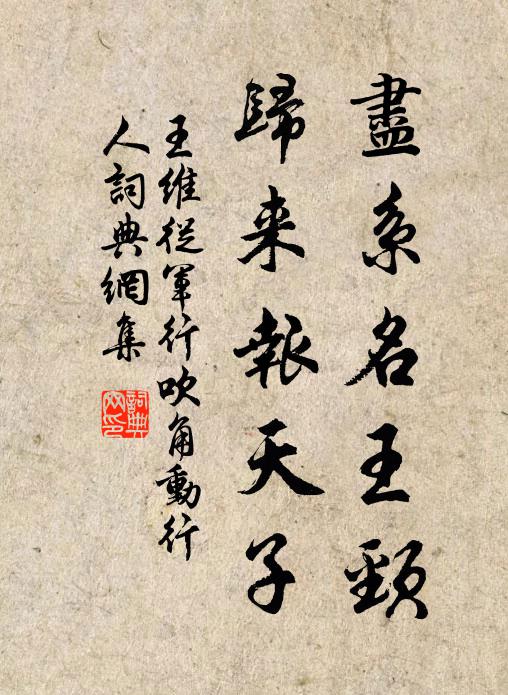 盡系名王頸
歸来報天子
王維從軍行吹角動行
人詞典網集
詞典
网印